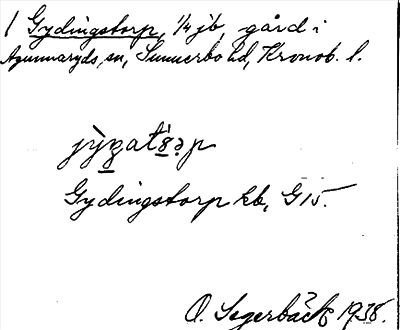 1 Gydingstorp, 1/4 jb, gård i
Agunnaryds sn, Sunnerbo hd, Kronob. l.
Gydingstorp kb, G 15.
O. Segerbäck 1938.